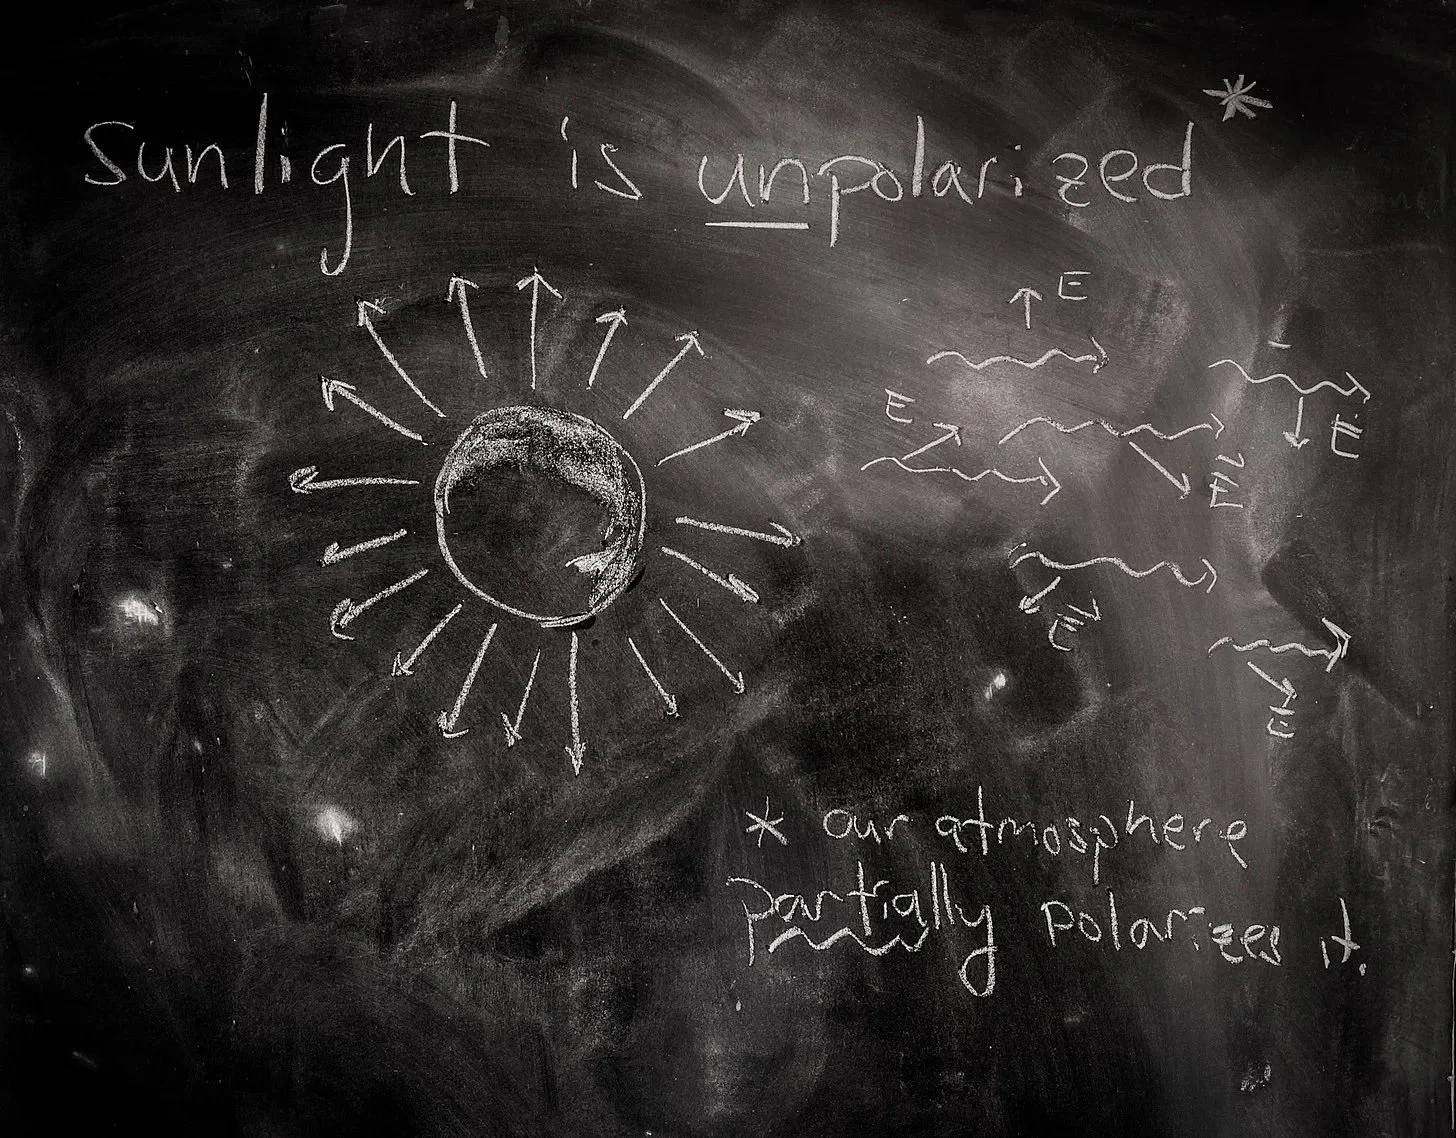 Sunlight is unpolarized*
E
E
E
E
E
E
* our atmosphere
partially polarizes it.